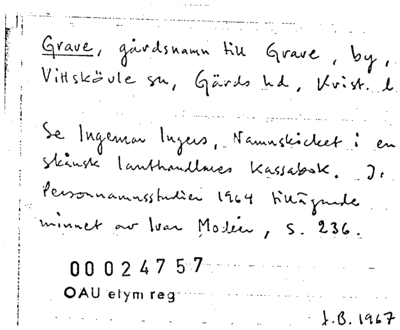 Grave, gårdsnamn till Grave, by,
Vittskövle sn, Gärds hd, Krist. l
Se Ingemar Ingers, Namnskicket i en
skånsk lanthandlares kassabok. I:
Personnamnsstudier 1964 tillägnade
minnet av Ivar Modéer, s. 236.
00024757
OAU etym reg
J.B. 1967